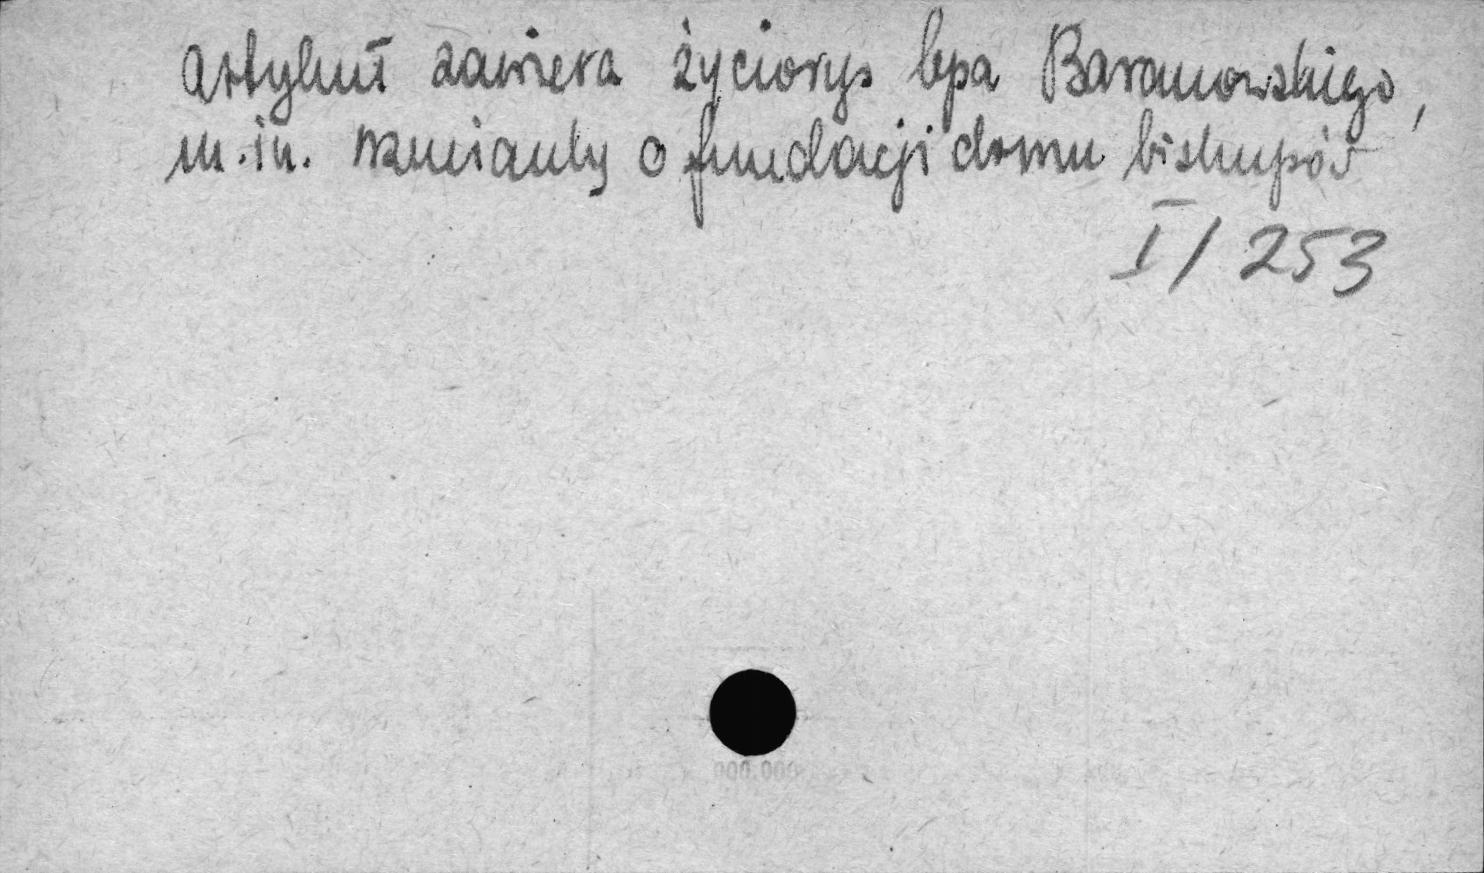 Artykuł zawiera życiorys bpa Baranowskiego,
m.in. wzmianki o fundacji domu biskupów
I/253
000.000